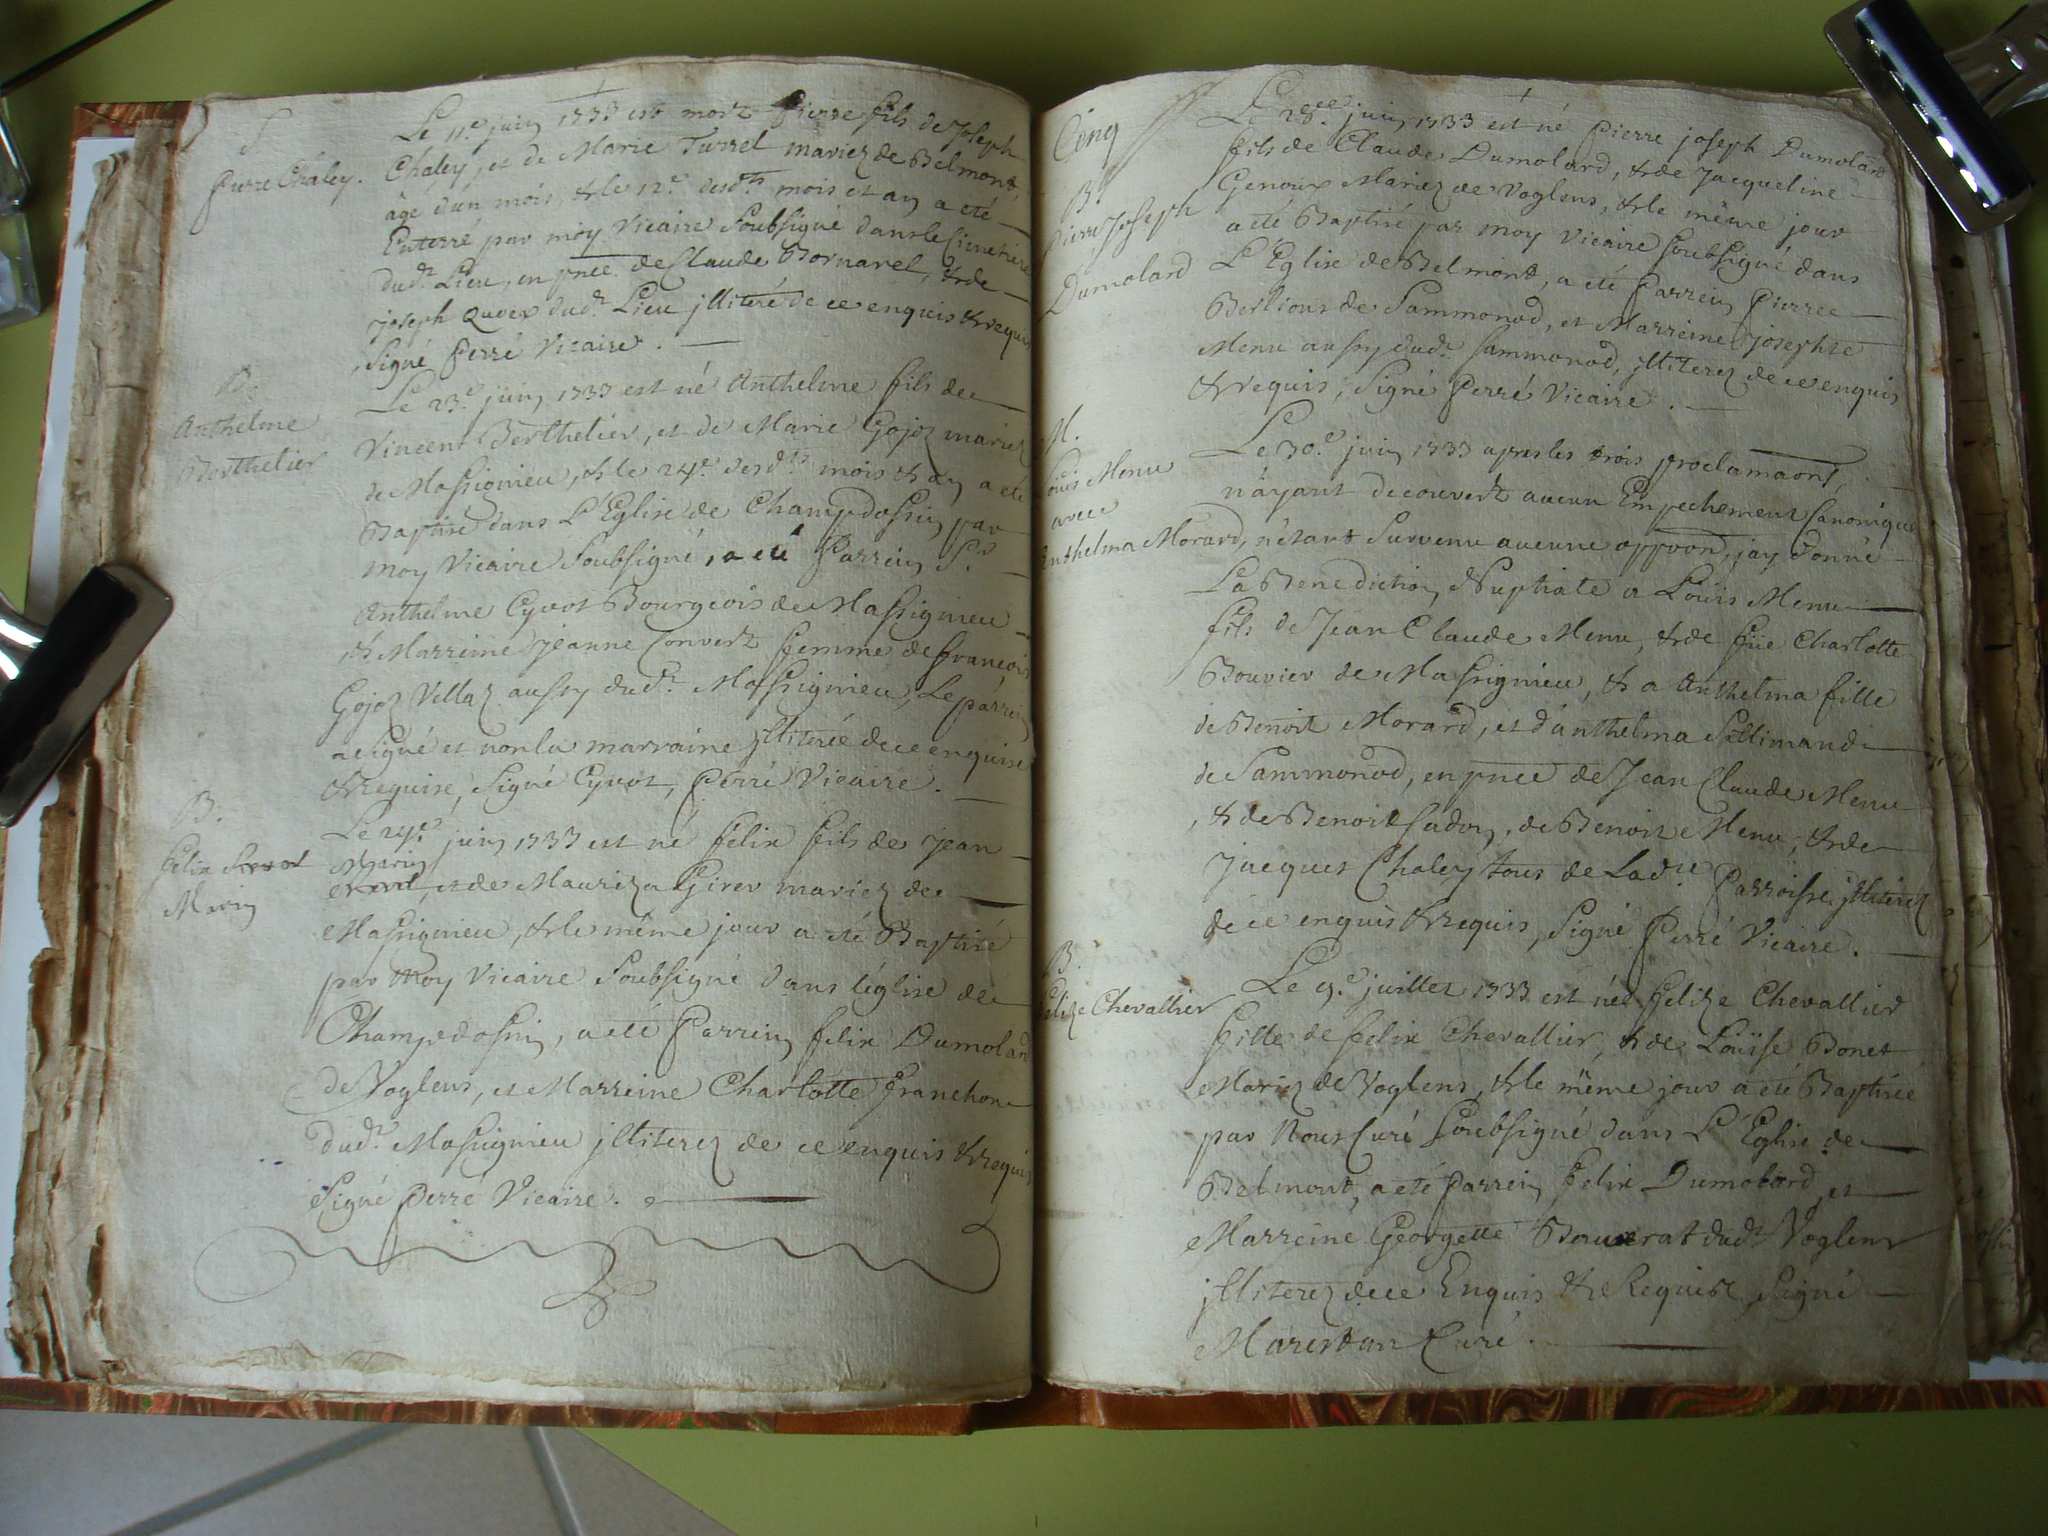 S
Pierre Chaley.
Le 11.e juin 1733 est mort Pierre fils de Joseph
Chaley, et de Marie Turrel mariez de Belmont
âgé d'un mois, & le 12.e desd.ts mois et an a eté
Enterré par moy Vicaire Soubsigné dans le Cimetiere
dud.t Lieu, en pnce de Claude Bornarel, & de
joseph quvex dud.t Lieu jlliteré de ce enquis & requis
Signé Perré Vicaire.
B.
Anthelme
Berthelier
Le 23.e juin 1733 est né Anthelme fils de
Vincent Berthelier, et de Marie Gojoz mariez
de Massignieu, & le 24.e desd.ts mois & an a eté
Baptisé dans L'Eglise de Champdossin par
moy Vicaire Soubsigné, a eté Parrein S.r
Anthelme Cyvot Bourgeois de Massignieu
& Marreine Jeanne Convert femme de françois
Gojoz Villaz aussy dud.t Massignieu, Le parrein
a signé et non la marraine jlliterée de ce enquise
& requise, Signé Cyvot, Perré Vicaire.
B.
felix
Marin
Le 24.e juin 1733 est né felix fils de Jean
Marin
et de Mauriza Girer mariez de
Massignieu, & le même jour a eté Baptisé
par moy Vicaire Soubsigné dans l'église de
Champdossin, a eté Parrein felix Dumolard
de Voglens, et Marreine Charlotte franchon
dud.t Massignieu jlliterez de ce enquis & requis
Signé Perré Vicaire.
Cinq
B.
Pierre Joseph
Dumolard
Le 28.e juin 1733 est né Pierre joseph Dumolard
fils de Claude Dumolard, & de Jacqueline
Genoux Mariez de Voglens, & le même jour
a eté Baptisé par moy Vicaire soubsigné dans
L'Eglise de Belmont, a eté Parrein Pierre
Berlioux de Sammonod, et Marreine Josephte
Menu aussy dud.t Sammonod, jlliterez de ce enquis
& requis, Signé Perré Vicaire.
M.
Loüis Menu
avec
Anthelma Morard
Le 30.e juin 1733 apres les trois proclamaons,
n'ayant decouvert aucun Empechement Canonique
n'étant Survenu aucune oppoon, jay donné
La Benediction Nuptiale a Loüis Menu
fils de Jean Claude Menu, & de füe Charlotte
Bouvier de Massignieu, & a Anthelma fille
de Benoit Morard, et d'anthelma Sallimand
de Sammonod, en pnce de Jean Claude Menu
, & de Benoit Cudon, de Benoit Menu, & de
Jacques Chaley tous de Lad.te Parroisse jlliterez
de ce enquis & requis, Signé Perré Vicaire.
B.
Felize Chevallier
Le 9.e juillet 1733 est née felize Chevallier
fille de felix Chevallier, & de Loüise Bonet
Mariez de Voglens, & le même jour a eté Baptisée
par Nous Curé Soubsigné dans L'Eglise de
Belmont, a eté Parrein felix Dumolard et
Marreine Georgette dud.t Voglens
jlliterez de ce Enquis & Requise, Signé
Marestan Curé.